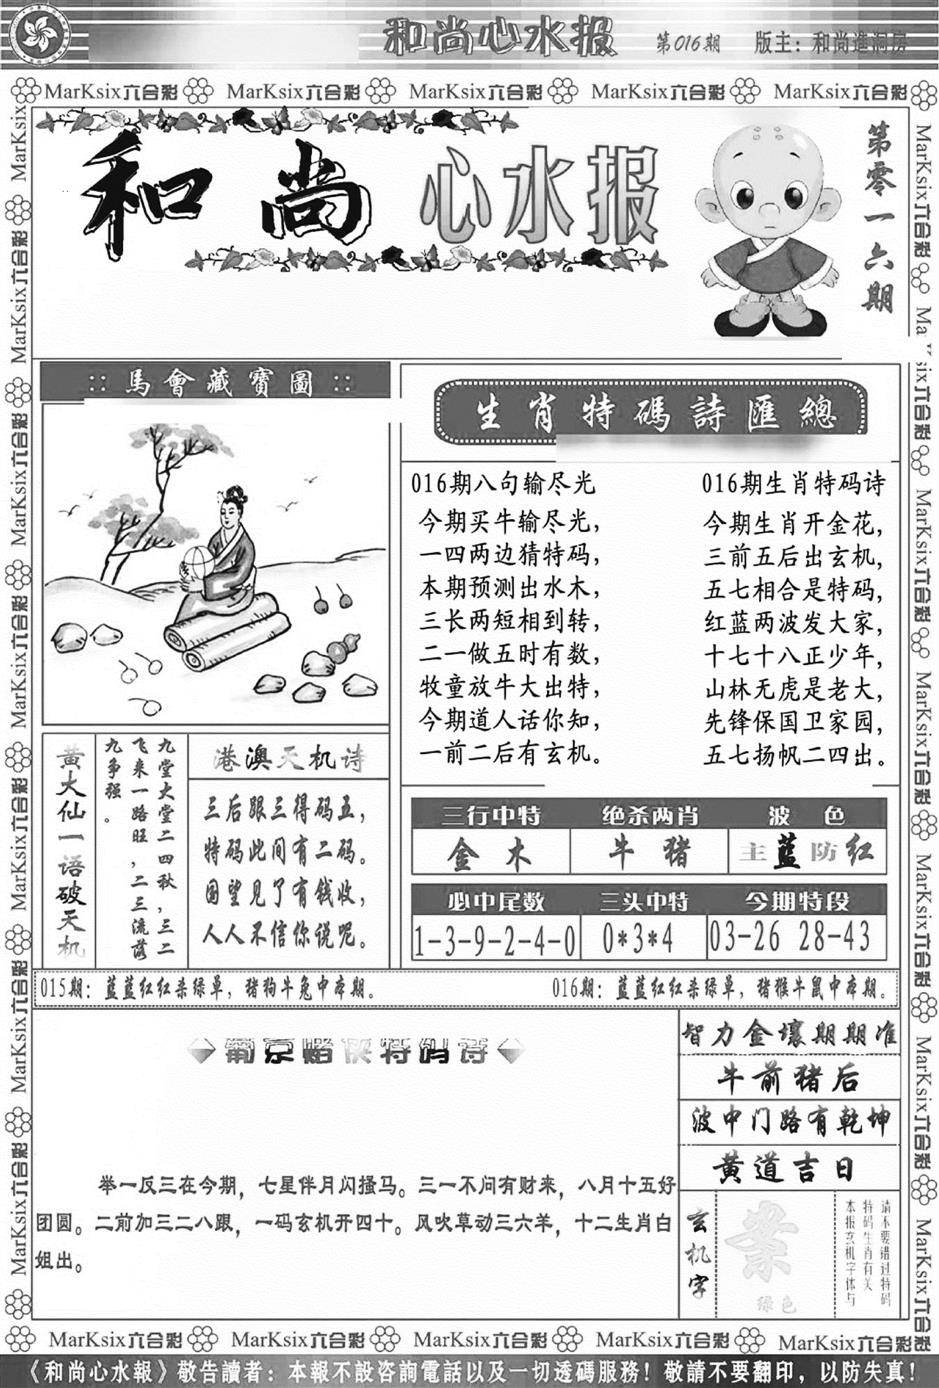 和尚心水报 第016期 版主：和尚進洞房
MarKsix六合彩 MarKsix六合彩 MarKsix六合彩 MarKsix六合彩 MarKsix六合彩
和尚心水报
第零一六期
::馬會藏寶圖::
生肖特碼詩匯總
016期八句输尽光
今期买牛输尽光，
一四两边猜特码，
本期预测出水木，
三长两短相到转，
二一做五时有数，
牧童放牛大出特，
今期道人话你知，
一前二后有玄机。
016期生肖特码诗
今期生肖开金花，
三前五后出玄机，
五七相合是特码，
红蓝两波发大家，
十七十八正少年，
山林无虎是老大，
先锋保国卫家园，
五七扬帆二四出。
黄大仙一语破天机
九堂大堂二四秋，三二
飞来一路旺，二三流落
九争强。
港澳天机诗
三后跟三得码五，
特码此间有二码。
国望见了有钱收，
人人不信你说呢。
三行中特 绝杀两肖 波色
金木 牛猪 主蓝防红
必中尾数 三头中特 今期特段
1-3-9-2-4-0 0*3*4 03-26 28-43
015期：蓝蓝红红杀绿单，猪狗牛兔中本期。 016期：蓝蓝红红杀绿单，猪猴牛鼠中本期。
葡京赌侠特码诗
举一反三在今期，七星伴月闪搔马。三一不问有财来，八月十五好
团圆。二前加三二八跟，一码玄机开四十。风吹草动三六羊，十二生肖白
姐出。
智力金壤期期准
牛前猪后
波中门路有乾坤
黄道吉日
玄机字
绿色
请不要错过特码
特码生肖有关
本报玄机字体与
MarKsix六合彩 MarKsix六合彩 MarKsix六合彩 MarKsix六合彩 MarKsix六合彩
《和尚心水報》敬告讀者：本報不設咨詢電話以及一切透碼服務！敬請不要翻印，以防失真！